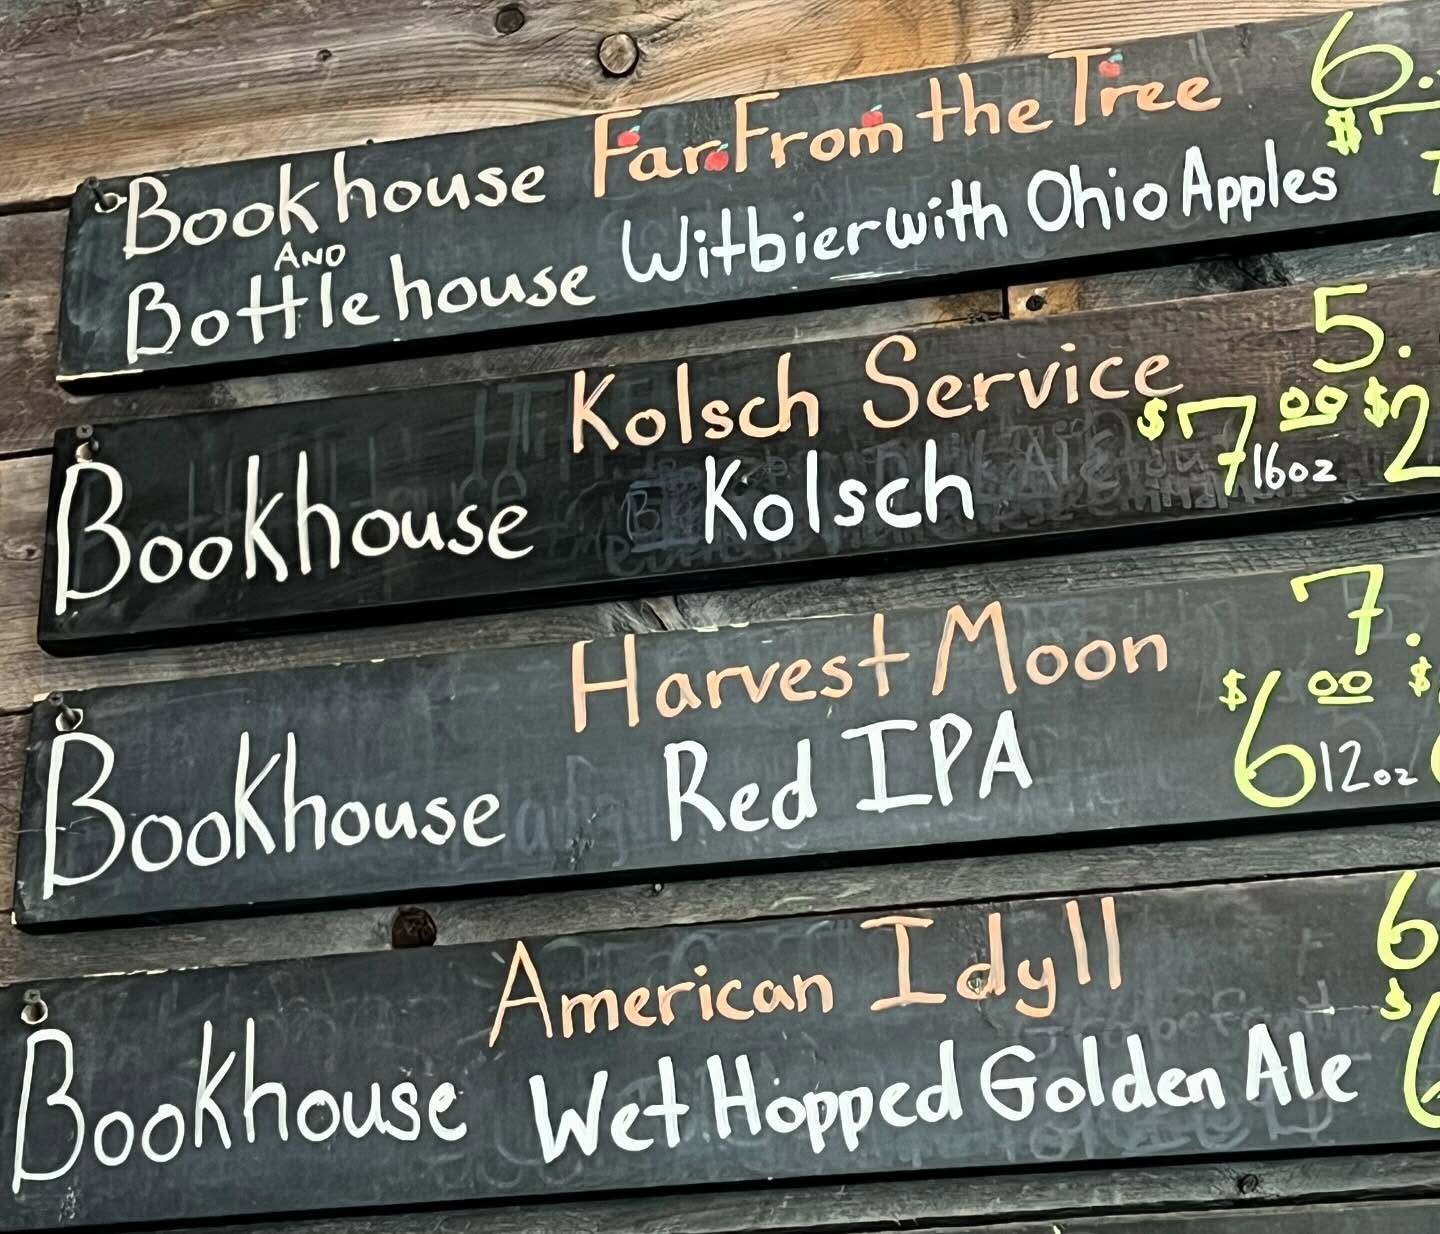 Bookhouse Far From the Tree 6.
AND
Bottlehouse Witbier with Ohio Apples $7
Kolsch Service 5.
Bookhouse Kolsch $7 00 16oz $2
Harvest Moon 7.
Bookhouse Red IPA $6 00 12oz $
American Idyll 6
Bookhouse Wet Hopped Golden Ale $6